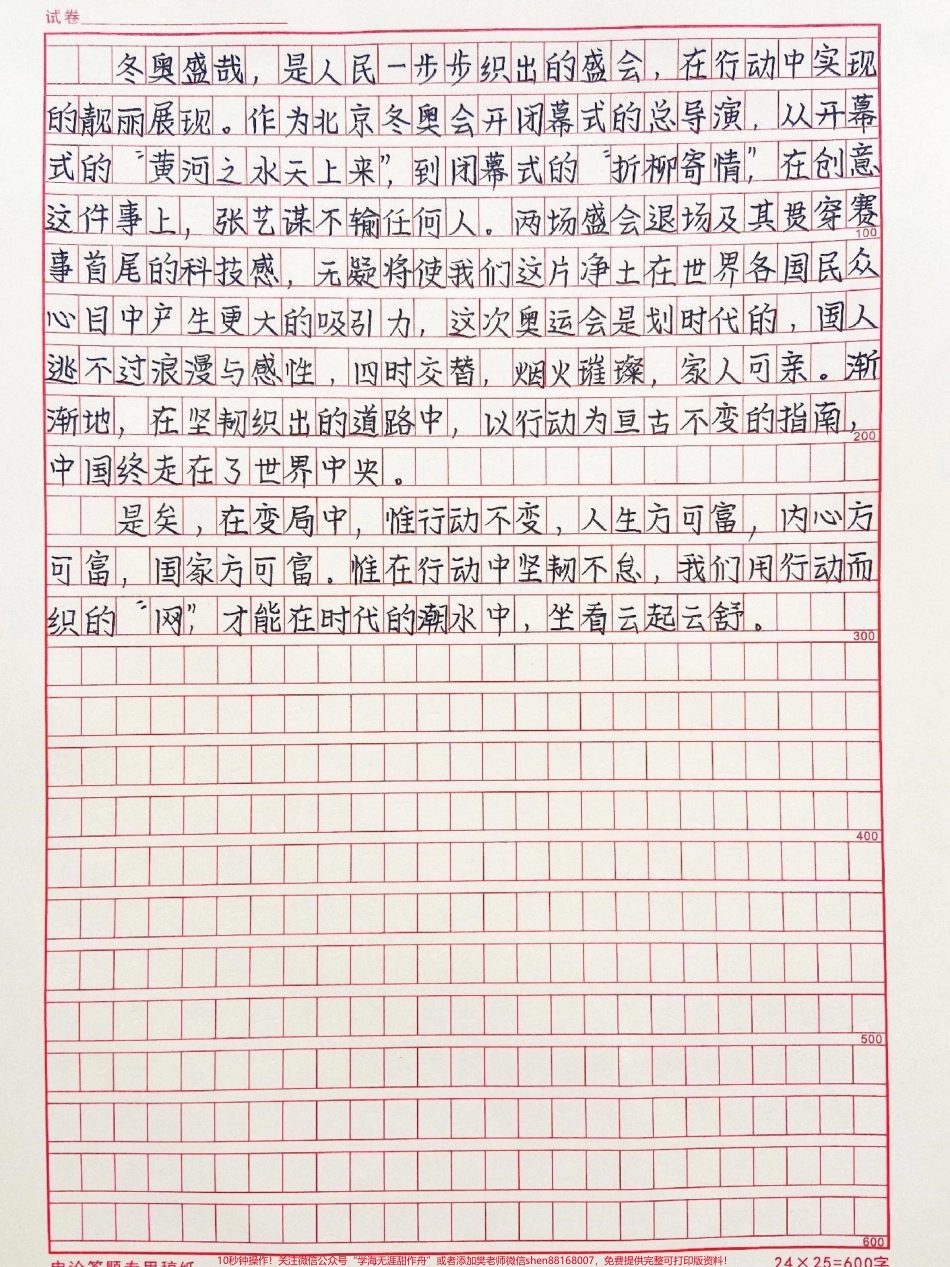 试卷
冬奥盛哉，是人民一步步织出的盛会，在行动中实现
的靓丽展现。作为北京冬奥会开闭幕式的总导演，从开幕
式的“黄河之水天上来”，到闭幕式的“折柳寄情”，在创意
这件事上，张艺谋不输任何人。两场盛会退场及其贯穿赛
100
事首尾的科技感，无疑将使我们这片净土在世界各国民众
心目中产生更大的吸引力，这次奥运会是划时代的，国人
逃不过浪漫与感性，四时交替，烟火璀璨，家人可亲。渐
渐地，在坚韧织出的道路中，以行动为亘古不变的指南，
200
中国终走在了世界中央。
是矣，在变局中，惟行动不变，人生方可富，内心方
可富，国家方可富。惟在行动中坚韧不怠，我们用行动而
织的“网”，才能在时代的潮水中，坐看云起云舒。
300
400
500
600
申论答题专用稿纸
10秒钟操作！关注微信公众号“学海无涯甜作舟”或者添加樊老师微信shen88168007，免费提供完整可打印版资料！
24×25=600字